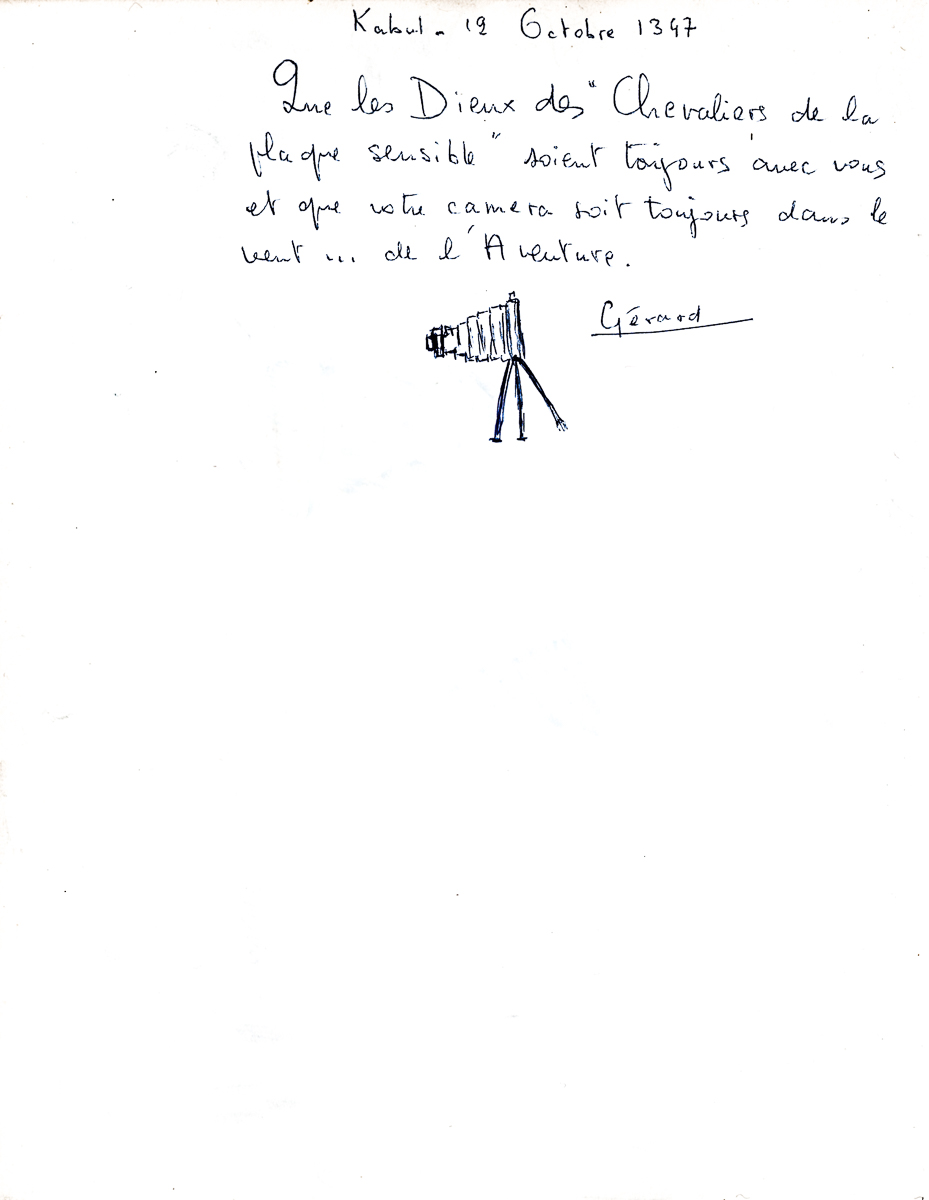 Kabul - 12 Octobre 1347
Que les Dieux des "Chevaliers de la
plaque sensible" soient toujours avec vous
et que votre camera soit toujours dans le
vent ... de l'Aventure.
Gérard